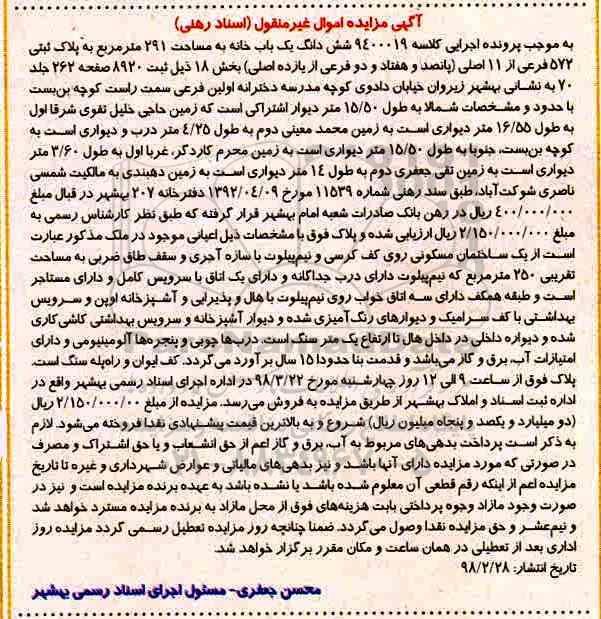 آگهی مزایده اموال غیرمنقول (اسناد رهنی)
به موجب پرونده اجرایی کلاسه ۹۴۰۰۰۱۹ شش دانگ یک باب خانه به مساحت ۲۹۱ مترمربع به پلاک ثبتی
۵۷۲ فرعی از ۱۱ اصلی (پانصد و هفتاد و دو فرعی از یازده اصلی) بخش ۱۸ ذیل ثبت ۸۹۲۰ صفحه ۲۶۲ جلد
۷۰ به نشانی بهشهر زیروان خیابان دادوی کوچه مدرسه دخترانه اولین فرعی سمت راست کوچه بن‌بست
با حدود و مشخصات شمالا به طول ۱۵/۵۰ متر دیوار اشتراکی است که زمین حاجی خلیل تقوی شرقا اول
به طول ۱۶/۵۵ متر دیواری است به زمین محمد معینی دوم به طول ۴/۲۵ متر درب و دیواری است به
کوچه بن‌بست، جنوبا به طول ۱۵/۵۰ متر دیواری است به زمین محرم کاردگر، غربا اول به طول ۳/۶۰ متر
دیواری است به زمین تقی جعفری دوم به طول ۱۴ متر دیواری است به زمین دهبندی به مالکیت شمسی
ناصری شوکت‌آباد، طبق سند رهنی شماره ۱۱۵۳۹ مورخ ۱۳۹۲/۰۴/۰۹ دفترخانه ۲۰۷ بهشهر در قبال مبلغ
۴۰۰/۰۰۰/۰۰۰ ریال در رهن بانک صادرات شعبه امام بهشهر قرار گرفته که طبق نظر کارشناس رسمی به
مبلغ ۲/۱۵۰/۰۰۰/۰۰۰ ریال ارزیابی شده و پلاک فوق با مشخصات ذیل اعیانی موجود در ملک مذکور عبارت
است از یک ساختمان مسکونی روی کف کرسی و نیم‌پیلوت با سازه آجری و سقف طاق ضربی به مساحت
تقریبی ۲۵۰ مترمربع که نیم‌پیلوت دارای درب جداگانه و دارای یک اتاق با سرویس کامل و دارای مستاجر
است و طبقه همکف دارای سه اتاق خواب روی نیم‌پیلوت با هال و پذیرایی و آشپزخانه اوپن و سرویس
بهداشتی با کف سرامیک و دیوارهای رنگ‌آمیزی شده و دیوار آشپزخانه و سرویس بهداشتی کاشی‌کاری
شده و دیواره داخلی در داخل هال تا ارتفاع یک متر سنگ است. درب‌ها چوبی و پنجره‌ها آلومینیومی و دارای
امتیازات آب، برق و گاز می‌باشد و قدمت بنا حدودا ۱۵ سال برآورد می‌گردد. کف ایوان و راه‌پله سنگ است.
پلاک فوق از ساعت ۹ الی ۱۲ روز چهارشنبه مورخ ۹۸/۳/۲۲ در اداره اجرای اسناد رسمی بهشهر واقع در
اداره ثبت اسناد و املاک بهشهر از طریق مزایده به فروش می‌رسد. مزایده از مبلغ ۲/۱۵۰/۰۰۰/۰۰ ریال
(دو میلیارد و یکصد و پنجاه میلیون ریال) شروع و به بالاترین قیمت پیشنهادی نقدا فروخته می‌شود. لازم
به ذکر است پرداخت بدهی‌های مربوط به آب، برق و گاز اعم از حق انشعاب و یا حق اشتراک و مصرف
در صورتی که مورد مزایده دارای آنها باشد و نیز بدهی‌های مالیاتی و عوارض شهرداری و غیره تا تاریخ
مزایده اعم از اینکه رقم قطعی آن معلوم شده باشد یا نشده باشد به عهده برنده مزایده است و نیز در
صورت وجود مازاد وجوه پرداختی بابت هزینه‌های فوق از محل مازاد به برنده مزایده مسترد خواهد شد
و نیم‌عشر و حق مزایده نقدا وصول می‌گردد. ضمنا چنانچه روز مزایده تعطیل رسمی گردد مزایده روز
اداری بعد از تعطیلی در همان ساعت و مکان مقرر برگزار خواهد شد.
تاریخ انتشار: ۹۸/۲/۲۸
محسن جعفری- مسئول اجرای اسناد رسمی بهشهر